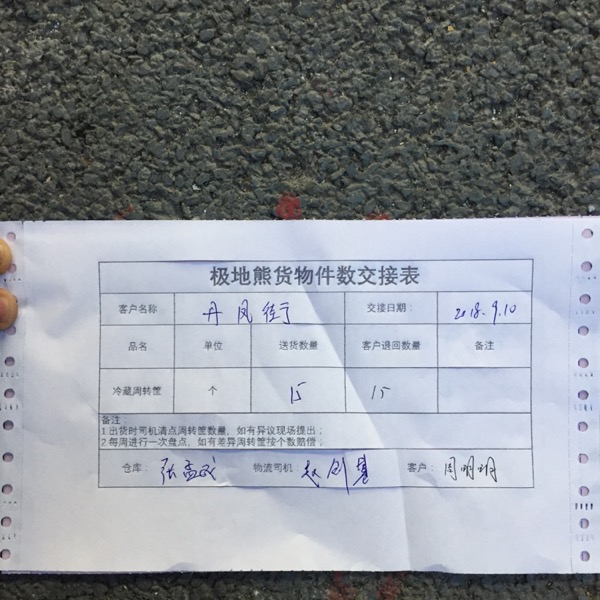 极地熊货物件数交接表
客户名称 丹凤街 交接日期： 2018.9.10
品名 单位 送货数量 客户退回数量 备注
冷藏周转筐 个 15 15
备注：
1.出货时司机清点周转筐数量，如有异议现场提出；
2.每周进行一次盘点，如有差异周转筐按个数赔偿；
仓库： 张孟 物流司机： 赵剑 客户： 周明